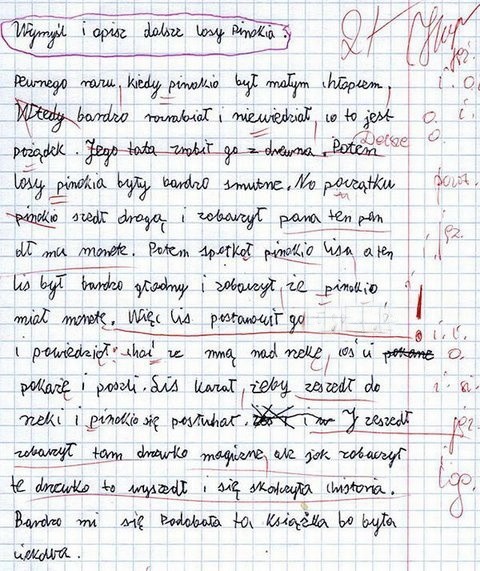 Wymyśl i opisz dalsze losy Pinokia. 2+
Pewnego razu, kiedy pinokio był małym chłopcem, i. o.
Wtedy bardzo rozrabiał i niewiedział, co to jest o. i.
pożądek. Jego tata zrobił go z drewna. Potem Dalsze o.
losy pinokia były bardzo smutne. Na początku
pinokio szedł drogą i zobaczył pana ten pan
dł mu monetę. Potem spotkoł pinokio lisa a ten
lis był bardzo głodny i zobaczył, że pinokio
miał monetę. Więc lis postanowił go !
i powiedzioł: choć ze mną nad rzekę, coś ci pokarze o.
pokażę i poszli. Lis kazał, żeby zeszedł do
rzeki i pinokio się posłuchał. i J zeszedł jęz.
zobaczył tam drzewko magiczne, ale jak zobaczył
te drzewko to wyszedł i się skończyła chistoria. log.
Bardzo mi się podobała ta książka bo była
ciekawa.